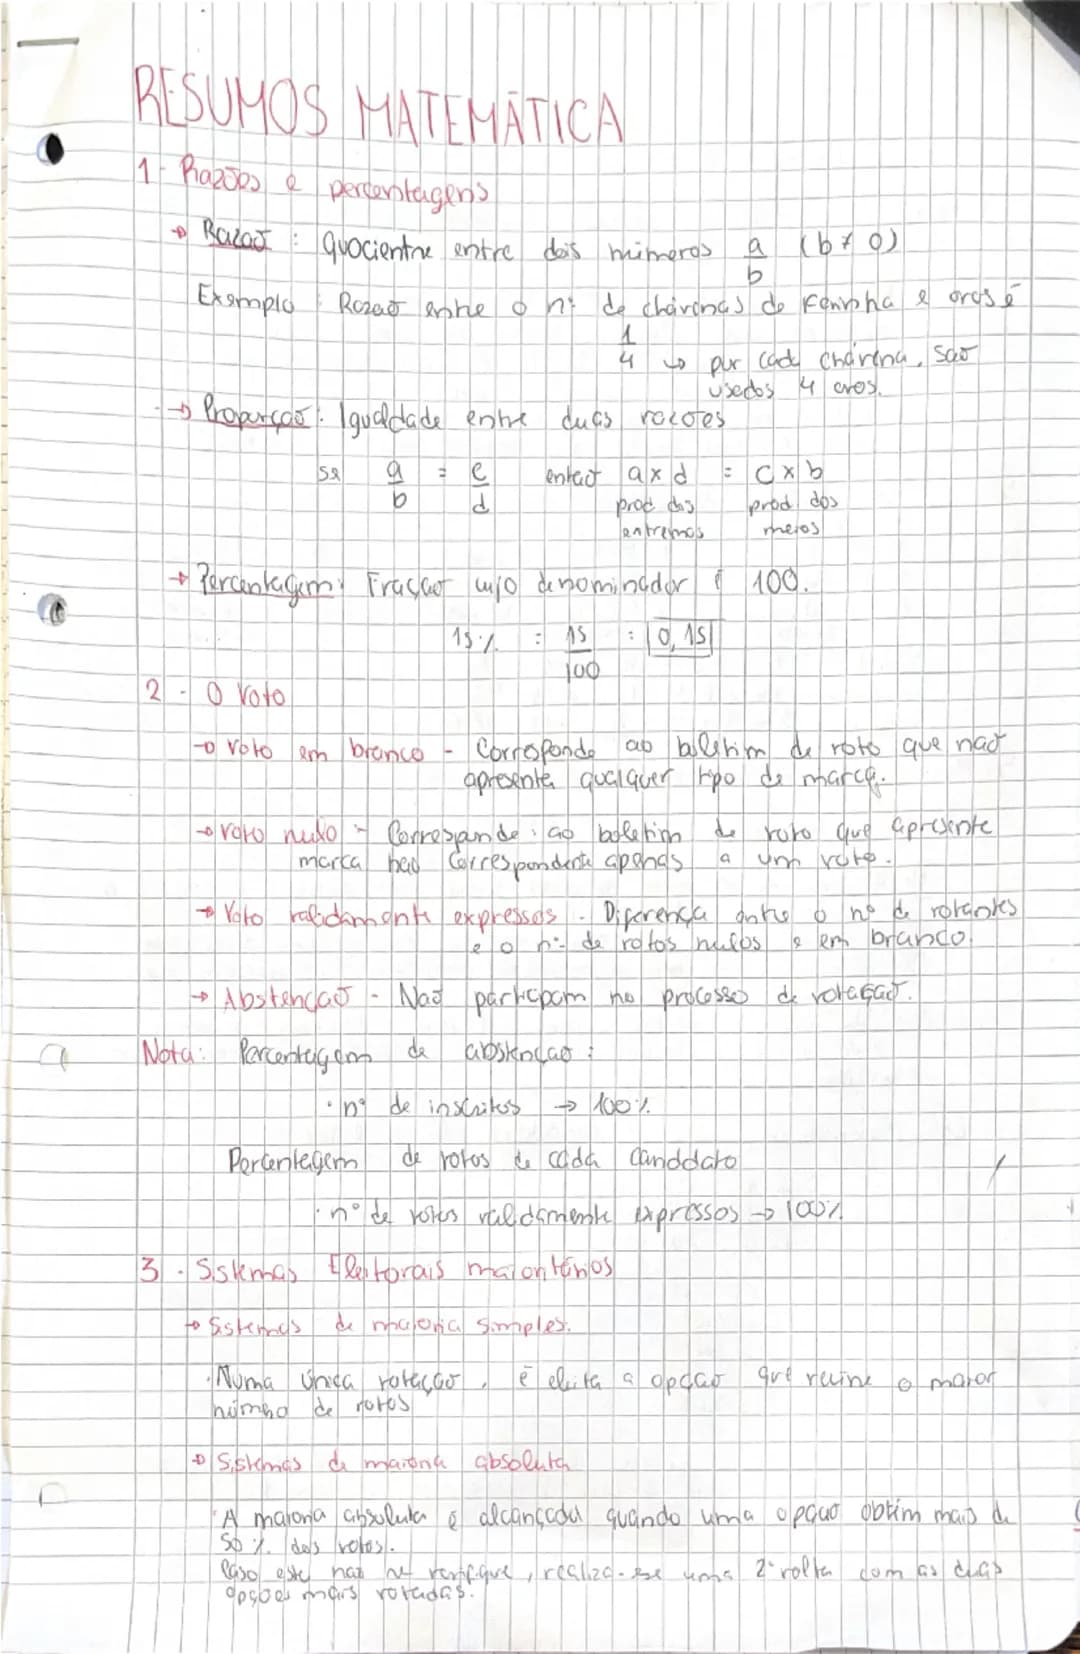 RESUMOS MATEMÁTICA
1 - Razões e percentagens
→ Razão : quocientre entre dois números a/b (b ≠ 0)
Exemplo : Razão entre o nº de chávenas de farinha e ovos é
1/4 ↳ por cada chávena, são
usados 4 ovos.
→ Proporção : Igualdade entre duas razões
se a/b = c/d então a x d = c x b
prod dos prod dos
extremos meios
→ Percentagem : Fração cujo denominador é 100.
15% = 15/100 = 0,15
2 - O Voto
→ Voto em branco - Corresponde ao boletim de voto que não
apresenta qualquer tipo de marca.
→ Voto nulo - Corresponde ao boletim de voto que apresente
marca não correspondente apenas a um voto.
→ Voto validamente expressos - Diferença entre o nº de votantes
e o nº de votos nulos e em branco.
→ Abstenção - Não participam no processo de votação.
Nota : Percentagem de abstenção :
· nº de inscritos → 100%
Percentagem de votos de cada canddato
· nº de votos validamente expressos → 100%
3 - Sistemas Eleitorais maioritários
→ Sistemas de maioria simples.
· Numa única votação, é eleita a opção que reúne o maior
número de votos
→ Sistemas de maioria absoluta
· A maioria absoluta é alcançada quando uma opção obtém mais de
50% dos votos.
Caso este não se verifique, realiza-se uma 2ª volta com as duas
opções mais votadas.